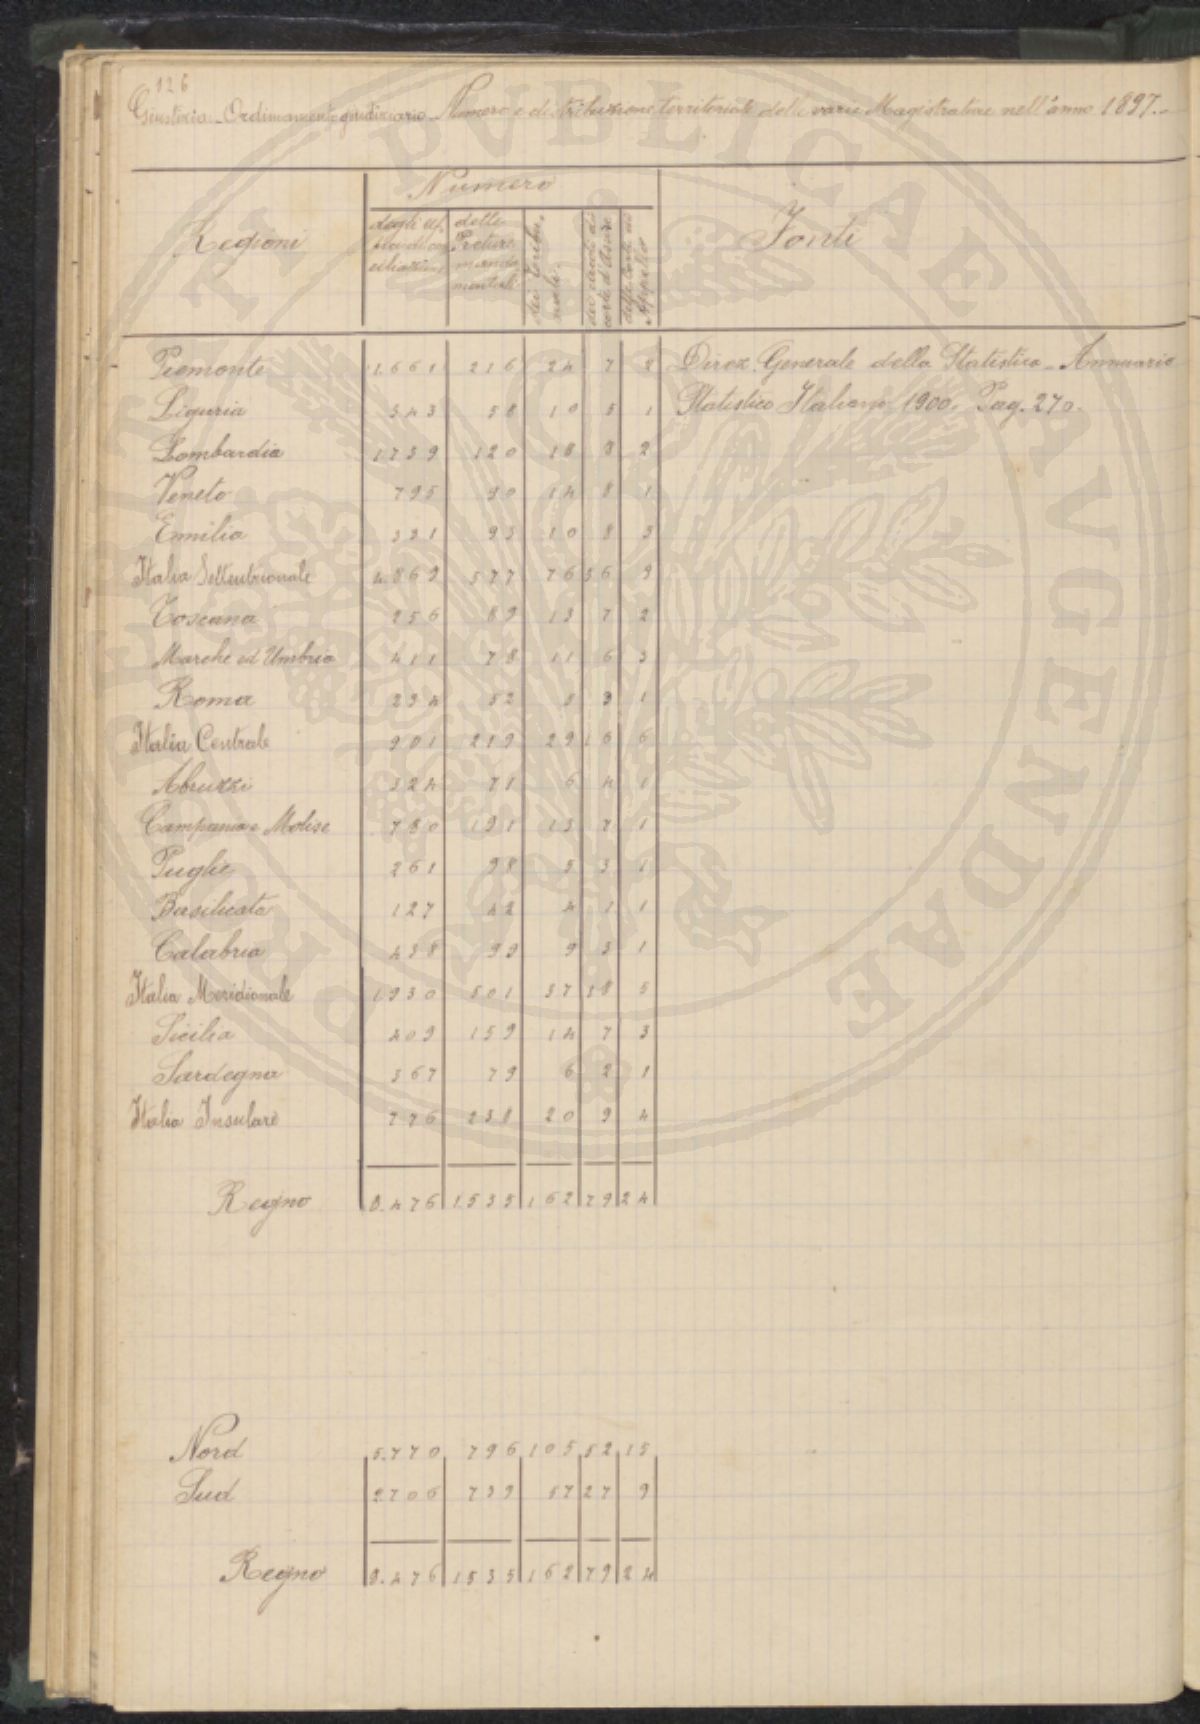 126
Giustizia - Ordinamento giudiziario - Numero e distribuzione territoriale delle varie Magistrature nell'anno 1897.-
Regioni
Numero
degli uf-
fici di con
ciliazione
delle
Preture
manda
mentali
dei Tribu-
nali
dei circoli di
corte d'Assise
delle corti di
Appello
Fonti
Piemonte 1.661 216 24 7 2 Direz. Generale della Statistica - Annuario
Liguria 343 58 10 5 1 Statistico Italiano 1900. Pag. 270.
Lombardia 1739 120 18 8 2
Veneto 795 90 14 8 1
Emilia 331 93 10 8 3
Italia Settentrionale 4.869 577 76 36 9
Toscana 256 89 13 7 2
Marche ed Umbria 411 78 11 6 3
Roma 234 52 5 3 1
Italia Centrale 901 219 29 16 6
Abruzzi 324 71 6 4 1
Campania e Molise 780 191 13 7 1
Puglie 261 98 5 3 1
Basilicata 127 42 4 1 1
Calabria 438 99 9 3 1
Italia Meridionale 1930 501 37 18 5
Sicilia 409 159 14 7 3
Sardegna 367 79 6 2 1
Italia Insulare 776 238 20 9 4
Regno 8.476 1535 162 79 24
Nord 5.770 796 105 52 15
Sud 2706 739 57 27 9
Regno 8.476 1535 162 79 24